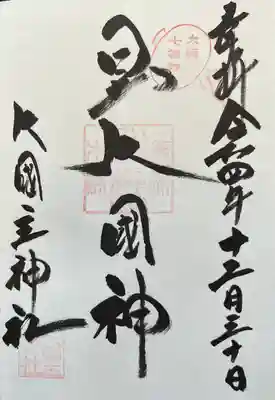 奉拝 令和四年十二月三十日
日出大國神
大國主神社
大阪
七福神